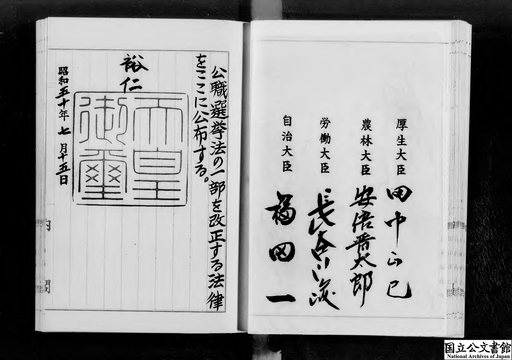 公職選挙法の一部を改正する法律
をここに公布する。
裕仁
天皇
御璽
昭和五十年七月十五日
内閣
厚生大臣 田中正巳
農林大臣 安倍晋太郎
労働大臣 長谷川峻
自治大臣 福田一
国立公文書館
National Archives of Japan